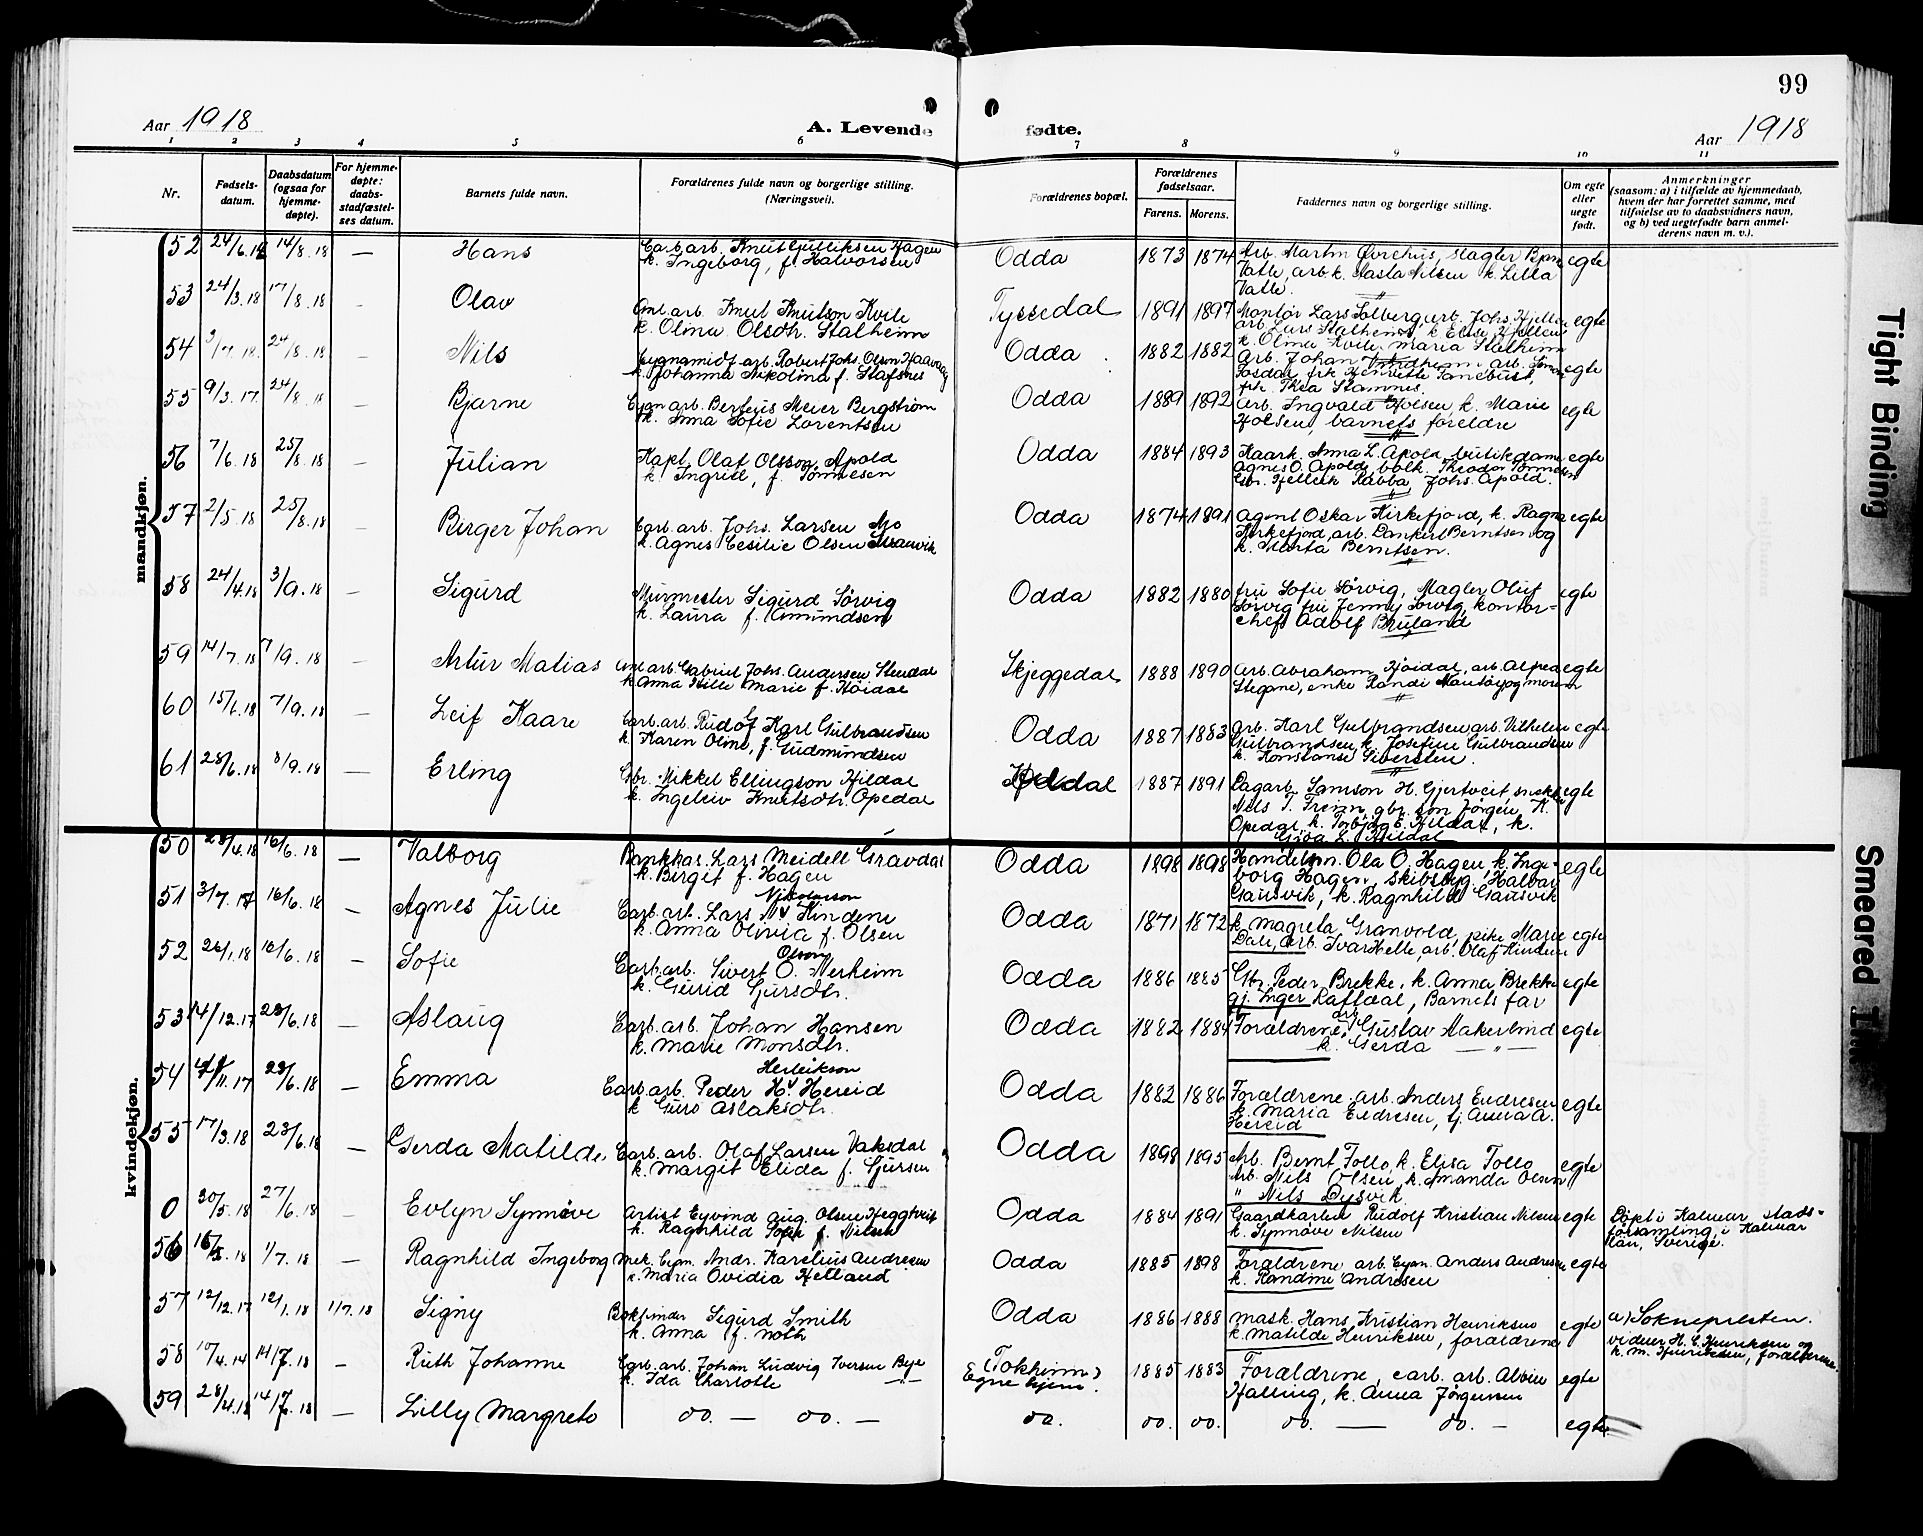 99
Aar 1918
A. Levende fødte.
Aar 1918
1 2 3 4 5 6 7 8 9 10 11
Nr.
Fødsels-
datum.
Daabsdatum
(ogsaa for
hjemme-
døpte).
For hjemme-
døpte:
daabs-
stadfæstel-
ses datum.
Barnets fulde navn.
Forældrenes fulde navn og borgerlige stilling.
(Næringsvei).
Forældrenes bopæl.
Forældrenes
fødselsaar.
Farens. Morens.
Faddernes navn og borgerlige stilling.
Om egte
eller
uegte
født.
Anmerkninger
(saasom: a) i tilfælde av hjemmedaab,
hvem der har forrettet samme, med
tilføielse av to daabsvidners navn,
og b) ved uegtefødte barn anmel-
derens navn m. v.).
mandkjøn.
52 24/6.18 14/8.18 — Hans Carb.arb. Knut Gulliksen Hagen
k. Ingeborg, f. Halvorsen
Odda 1873 1874 Arb. Martin Øvrehus, slagter Bjarne
Valle, arb. k. Aasta Nilsen k. Lilla
Valle.
egte
53 24/3.18 17/8.18 Olav Aml.arb. Knut Knutson Kvile
k. Olina Olsdtr. Stalheim
Tyssedal 1891 1897 Montør Lars Solberg, arb. Johs. Hjellen
arb. Lars Stalheim, k. Elise Hjellen
k. Olina Kvile, Maria Stalheim
egte
54 3/7.18 24/8.18 Nils Cyanamidf. arb. Robert Johs. Olsen Haavaag
k. Johanna Nikolina f. Stafsnes
Odda 1882 1882 Arb. Johan
frk. Thea Stamnes.
egte
55 9/3.17. 24/8.18 Bjarne Cyan arb. Berteus Meier Bergstrøm
k. Anna Sofie Lorentsen
Odda 1889 1892 Arb. Ingvald Holsen, k. Marie
Holsen, barnets foreldre
egte
56 7/6.18 25/8.18 — Julian Kapt. Olaf Olsson Apold
k. Ingrid, f. Tønnesen
Odda 1884 1893 Kaark. Anna L. Apold, butikdame
Agnes O. Apold, bolk. Theodor Tønnesen
Gbr. Hjelleik Rabba, Johs. Apold.
egte
57 2/5.18 25/8.18 Birger Johan Carb.arb. Johs. Larsen Mo
k. Agnes Cesilie Olsen
Odda 1874 1891 Agent Oskar Kirkefjord, k. Ragna
Kirkefjord, arb. Dankert Berntsen og
k. Marta Berntsen.
egte
58 24/4.18 3/9.18 — Sigurd Murmester Sigurd Sørvig
k. Laura f. Amundsen
Odda 1882 1880 fru Sofie Sørvig, Magler Oluf
Sørvig fru Jenny Sørvig, kontor-
chef Adolf Bruland
egte
59 14/7.18 7/9.18 — Artur Matias Aml.arb. Gabriel Johs. Andersen Stendal
k. Anna Helle Marie f. Høidal
Skjeggedal 1888 1890 Arb. Abraham Høidal, arb. Alfred
Stegane, enke Randi og moren
egte
60 15/6.18 7/9.18 — Leif Kaare Carb.arb. Rudolf Karl Gulbrandsen
k. Karen Oline, f. Gudmundsen
Odda 1887 1883 Arb. Karl Gulbrandsen, arb. Vilhelm
Gulbrandsen, k. Josefine Gulbrandsen
k. Konstanse Sivertsen.
egte
61 28/6.18 8/9.18 — Erling Gbr. Mikkel Ellingson Hildal
k. Ingeleiv Knutsdtr. Opedal
Hildal 1887 1891 Dagarb. Samson H. Gjertveit snekker
Nils T. Freim, gbr. søn Jørgen K.
Opedal, k. Torbjørg E. Hildal, k.
Hildal
egte
kvindekjøn.
50 28/4.18 16/6.18 — Valborg Bankkas. Lars Meidell Gravdal
k. Birgit f. Hagen
Odda 1898 1898 Handelsm. Ola O. Hagen, k. Inge-
borg Hagen, skibsbyg. Halvar
Gansvik, k. Ragnhild Gansvik
egte
51 3/7.17 16/6.18 — Agnes Julie Carb.arb. Lars N. Nikolaison Kindene
k. Anna Olivia f. Olsen
Odda 1871 1872 k. Magreta Granvold, pike Marie
Dale, arb. Ivar Helle, arb. Olaf Kindene
egte
52 26/1.18 16/6.18 — Sofie Carb.arb. Sivert O. Olson Nerheim
k. Gurid Sjursdtr.
Odda 1886 1885 Gbr. Peder Brekke, k. Anna Brekke
gj. Inger Rafdal, Barnets far
egte
53 14/12.17 23/6.18 — Aslaug Carb.arb. Johan Hansen
k. Marie Monsdtr.
Odda 1882 1884 Forældrene, arb. Gustav Aakerlund
k. Gerda — " —
egte
54 11.17 23/6.18 — Emma Carb.arb. Peder H. Herleikson Hereid
k. Guro Aslaksdtr.
Odda 1882 1886 Forældrene, arb. Anders Endresen
k. Maria Endresen, tj. Anna A.
Hereid
egte
55 17/3.18 23/6.18 — Gerda Matilde Carb.arb. Olaf Larsen Vaksdal
k. Margit Elida f. Sjursen
Odda 1898 1895 Arb. Bernt Tollo, k. Elisa Tollo
Arb. Nils Olsen, k. Amanda Olsen
" Nils Dysvik
egte
0 30/5.18 27/6.18 — Evlyn Synnøve Artist Eyvind Aug. Olsen Heggtveit
k. Ragnhild Sofie f. Nilsen
Odda 1884 1891 Gaardkarlen Rudolf Kristian Nilsen
k. Synnøve Nilsen
egte Døpt i Kalmar stads-
församling i Kalmar
län, Sverige.
56 16/5.18 1/7.18 — Ragnhild Ingeborg Mek. Cyan. Andr. Karelius Andresen
k. Maria Ovidia Helland
Odda 1885 1898 Forældrene arb. Cyan. Anders Andresen
k. Randine Andresen
egte
57 12/12.17 12/1.18 1/7.18 Signy Bokbinder Sigurd Smith
k. Anna f. Noth
Odda 1886 1888 mask. Hans Kristian Henriksen
k. Matilde Henriksen, forældrene
egte a) Soknepresten.
vidner H. C. Henriksen og
k. M. Henriksen, forældrene.
58 10/4.14 14/7.18 — Ruth Johanne Carb.arb. Johan Ludvig Iversen Bye
k. Ida Charlotte — " —
(Tokheim)
Egne hjem.
1885 1883 Forældrene, carb. arb. Albin
Halling, k. Anna Jørgensen
egte
59 28/4.18 14/7.18 — Lilly Margrete do. — do. —
do. do. do. do. — do. —
egte
Tight Binding
Smeared